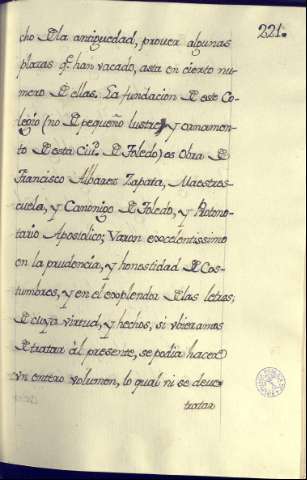 221.
cho de la antiguedad, proveer algunas
plazas qe. han vacado, asta en cierto nu-
mero de ellas. La fundacion de este Co-
legio (no de pequeño lustre, y ornamen-
to de esta Ciud. de Toledo) es Obra de
Francisco Albarez Zapata, Maestres-
cuela, y Canonigo de Toledo, y Protono-
tario Apostolico; Varon excelentissimo
en la prudencia, y honestidad de Cos-
tumbres, y en el explendor de las letras,
de cuya virtud, y hechos, si vbieramos
de tratar àl presente, se podia hacer
vn entero volumen, lo qual ni se deve
tratar